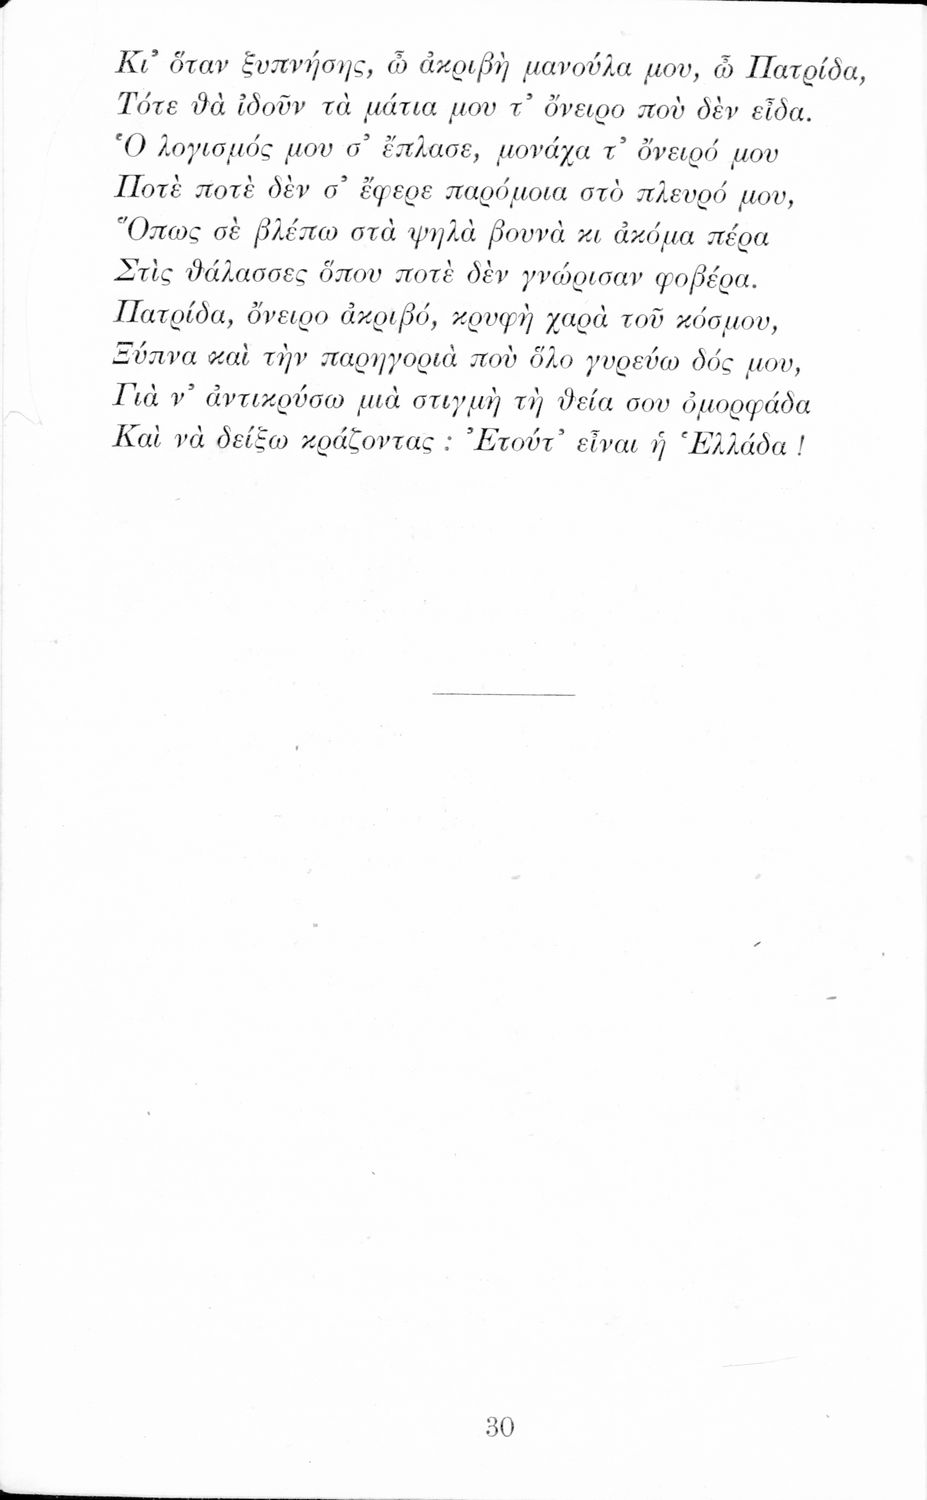 Κι’ ὅταν ξυπνήσης, ὦ ἀκριβὴ μανούλα μου, ὦ Πατρίδα,
Τότε θὰ ἰδοῦν τὰ μάτια μου τ’ ὄνειρο ποὺ δὲν εἶδα.
Ὁ λογισμός μου σ’ ἔπλασε, μονάχα τ’ ὄνειρό μου
Ποτὲ ποτὲ δὲν σ’ ἔφερε παρόμοια στὸ πλευρό μου,
Ὅπως σὲ βλέπω στὰ ψηλὰ βουνὰ κι ἀκόμα πέρα
Στὶς θάλασσες ὅπου ποτὲ δὲν γνώρισαν φοβέρα.
Πατρίδα, ὄνειρο ἀκριβό, κρυφὴ χαρὰ τοῦ κόσμου,
Ξύπνα καὶ τὴν παρηγοριὰ ποὺ ὅλο γυρεύω δός μου,
Γιὰ ν’ ἀντικρύσω μιὰ στιγμὴ τὴ θεία σου ὀμορφάδα
Καὶ νὰ δείξω κράζοντας : Ἐτούτ’ εἶναι ἡ Ἑλλάδα !
30